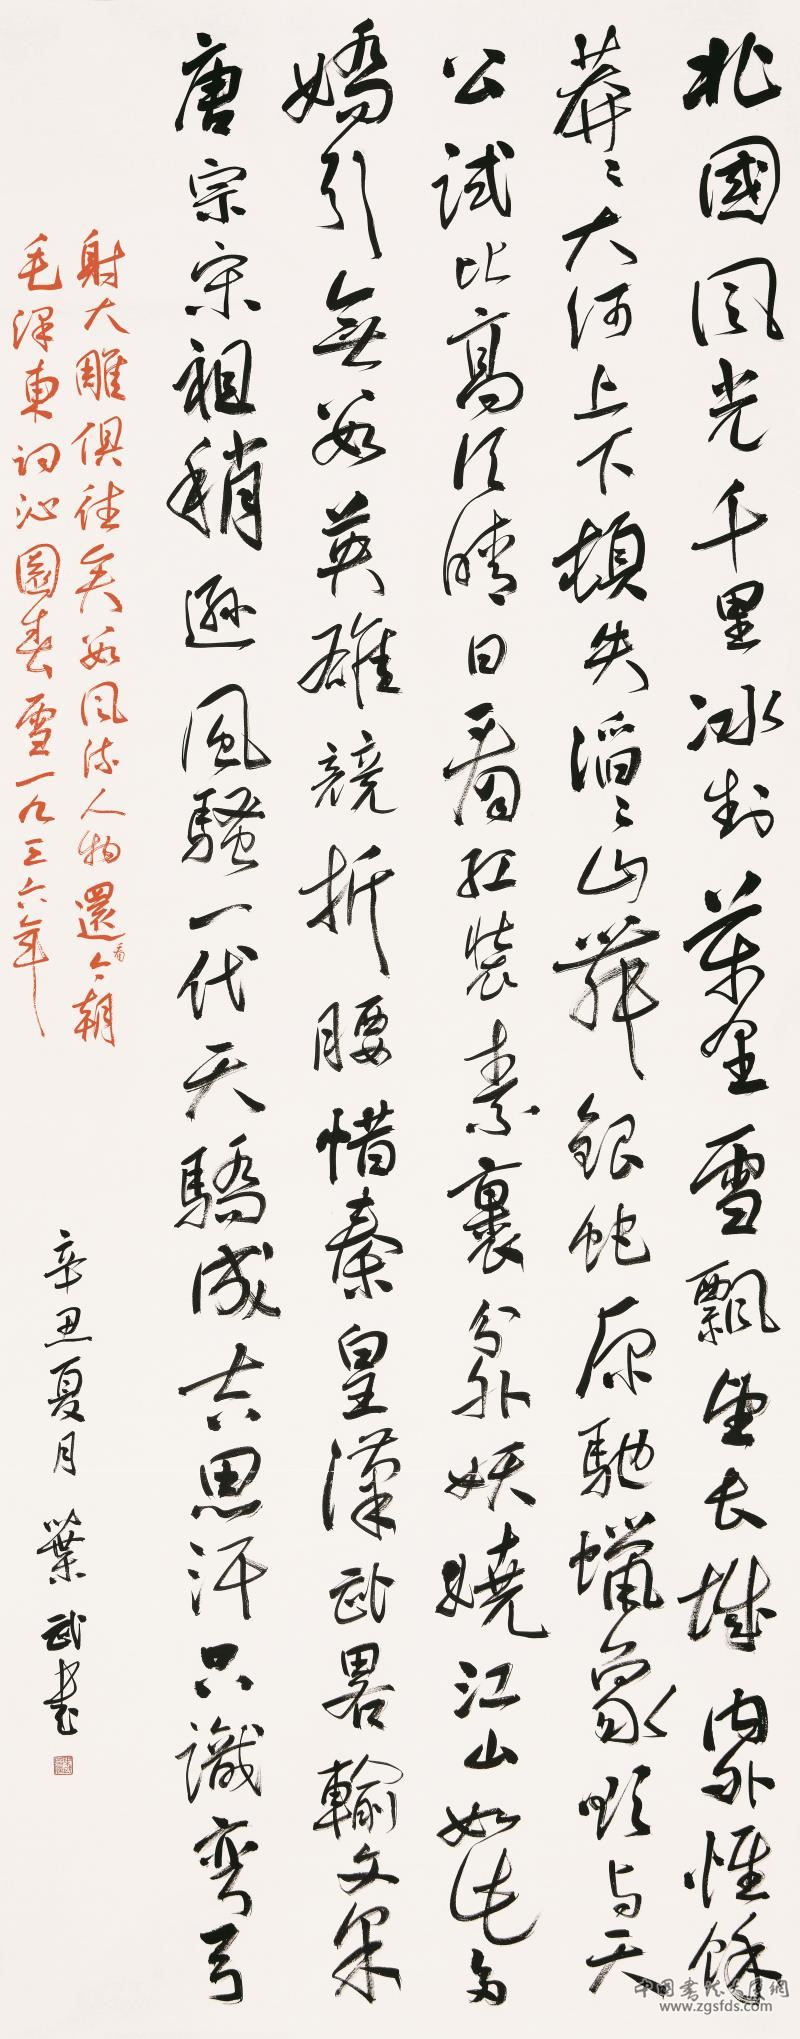 北國風光千里冰封萬里雪飄望長城內外惟餘
莽〻大河上下頓失滔〻山舞銀蛇原馳蠟象欲與天
公試比高須晴日看紅裝素裹分外妖嬈江山如此多
嬌引無數英雄競折腰惜秦皇漢武畧輸文采
唐宗宋祖稍遜風騷一代天驕成吉思汗只識彎弓
射大雕俱往矣數風流人物還看今朝
毛澤東詞沁園春雪一九三六年
辛丑夏月 葉武書
www.zgsfds.com